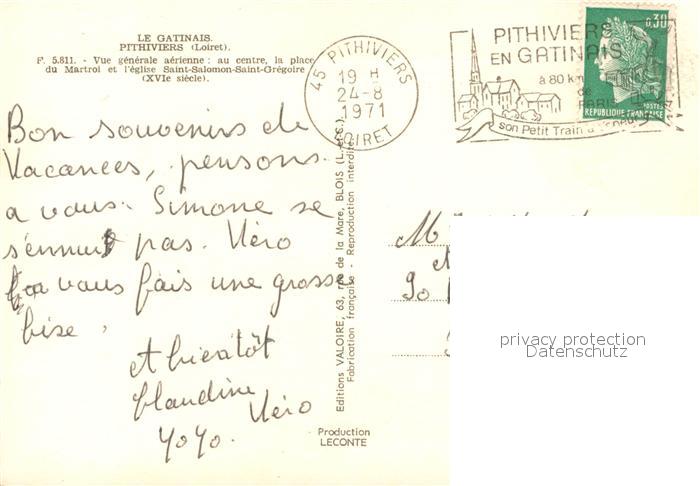 LE GATINAIS.
PITHIVIERS (Loiret).
F. 5.811. - Vue générale aérienne : au centre, la place
du Martroi et l'église Saint-Salomon-Saint-Grégoire
(XVIe siècle).
45 PITHIVIERS
19 H
24-8
1971
LOIRET
PITHIVIERS
EN GATINAIS
à 80 km
de
PARIS
son Petit Train à
0,30
POSTES
REPUBLIQUE FRANÇAISE
Bon souvenirs de
Vacances, pensons
a vous. Simone se
s'ennui pas. Véro
vous fais une grosse
bise.
et bientôt
Claudine
Véro
Yoyo.
Editions VALOIRE, 63, rue de la Mare, BLOIS (L.-&-C.)
Fabrication française - Reproduction interdite
Production
LECONTE
M
90
privacy protection
Datenschutz